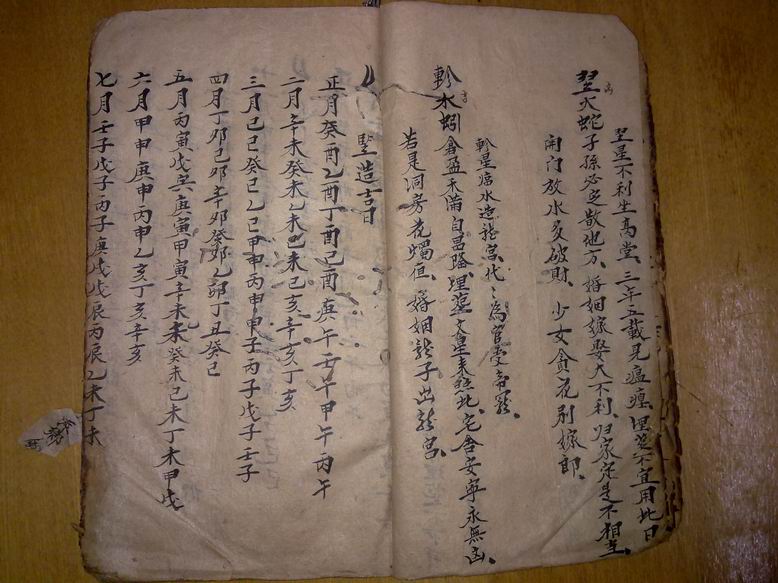 翌星不利坐高堂、三年五載見瘟㾮、埋塟不宜用此日
翌火蛇 凶 子孫必定散他方、婚姻嫁娶大不利、归家定是不相宜、
開门放水多破財、少女貪花别嫁郎、
軫星临水造龍宮、代〻為官受帝寵、
軫水蚓 吉 倉盈禾滿自昌隆、埋塟文星来照此、宅舍安寧永無凶、
若是洞房花燭但、婚姻龍子出龍宮、
竪造吉日
正月癸酉乙酉丁酉己酉庚午壬午甲午丙午
二月辛未癸未乙未己未己亥辛亥丁亥
三月己巳癸巳乙巳甲申丙申甲子丙子戊子壬子
四月丁卯己卯辛卯癸卯乙卯丁丑癸巳
五月丙寅戊寅庚寅甲寅辛未癸未己未丁未甲戌
六月甲申庚申丙申乙亥丁亥辛亥
七月壬子戊子丙子庚戌戊辰丙辰乙未丁未